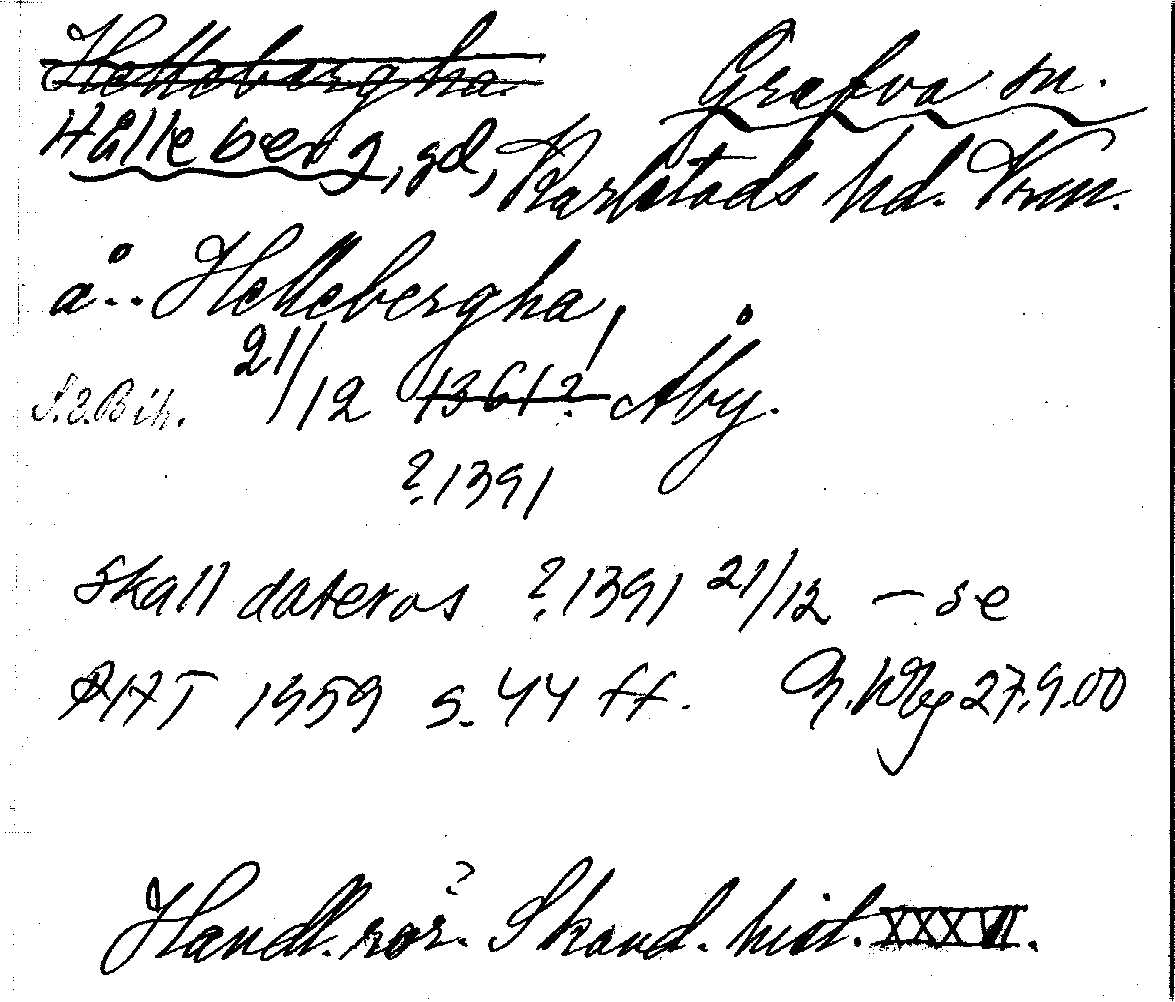 Hellebergha. Grafva sn.
Hälleberg, gd, Karlstads hd. Vrml.
å.. Hellebergha,
21/12 1361? Åby.
S.S. Bih.
?1391
Skall dateras ?1391 21/12 – se
PHT 1959 s. 44 ff. 27.9.00
Handl. rör. Skand. hist. XXXII.